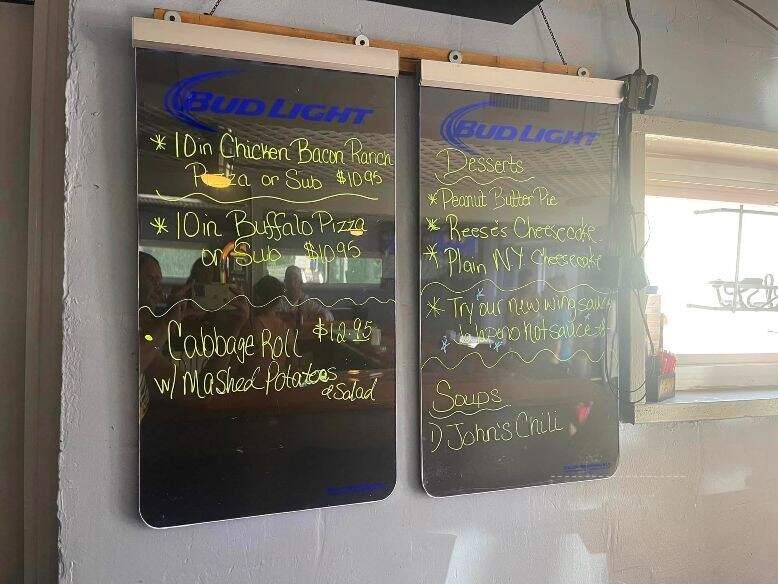 BUD LIGHT
* 10in Chicken Bacon Ranch
Pizza or Sub $10.95
* 10in Buffalo Pizza
or Sub $10.95
• Cabbage Roll $12.95
w/ Mashed Potatoes
& Salad
BUD LIGHT
Desserts
* Peanut Butter Pie
* Reese's Cheesecake
* Plain NY Cheesecake
* Try our new wing sauce
hot sauce
Soups
1) John's Chili